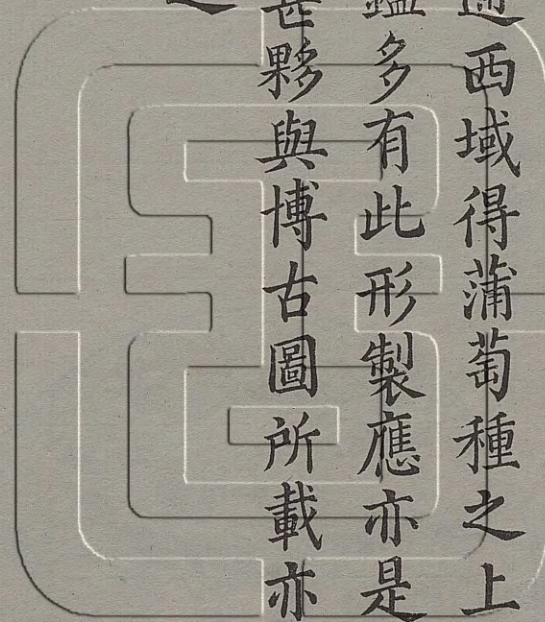 西域得蒲萄種之上
鑑多有此形製應亦是
甚夥與博古圖所載亦